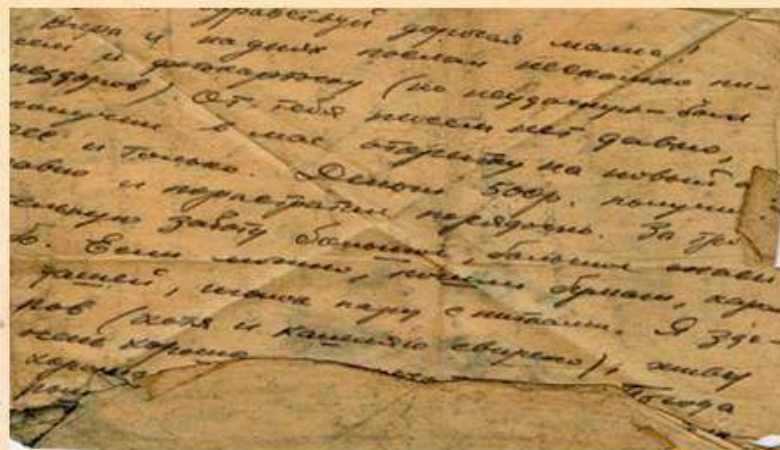 Здравствуй дорогая мама!
Вчера и на днях послал несколько пи-
сем и фотокарточку (но неудачную - был
нездоров). От тебя писем нет давно,
получил в мае открытку на новый а
и только. Деньги 500р. получил
давно и перетратил порядочно. За тро
заботу большое, большое спаси
б. Если можно, пошли бумаги, кара
дашей, иголок пару с нитками. Я здо-
ров (хотя и кашляю свирепо), живу
очень хорошо
хорошо Погода